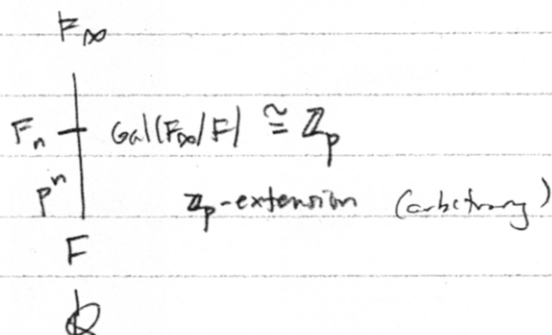 F∞
Fn Gal(F∞/F) ≅ ℤp
pⁿ ℤp-extension (arbitrary)
F
Q